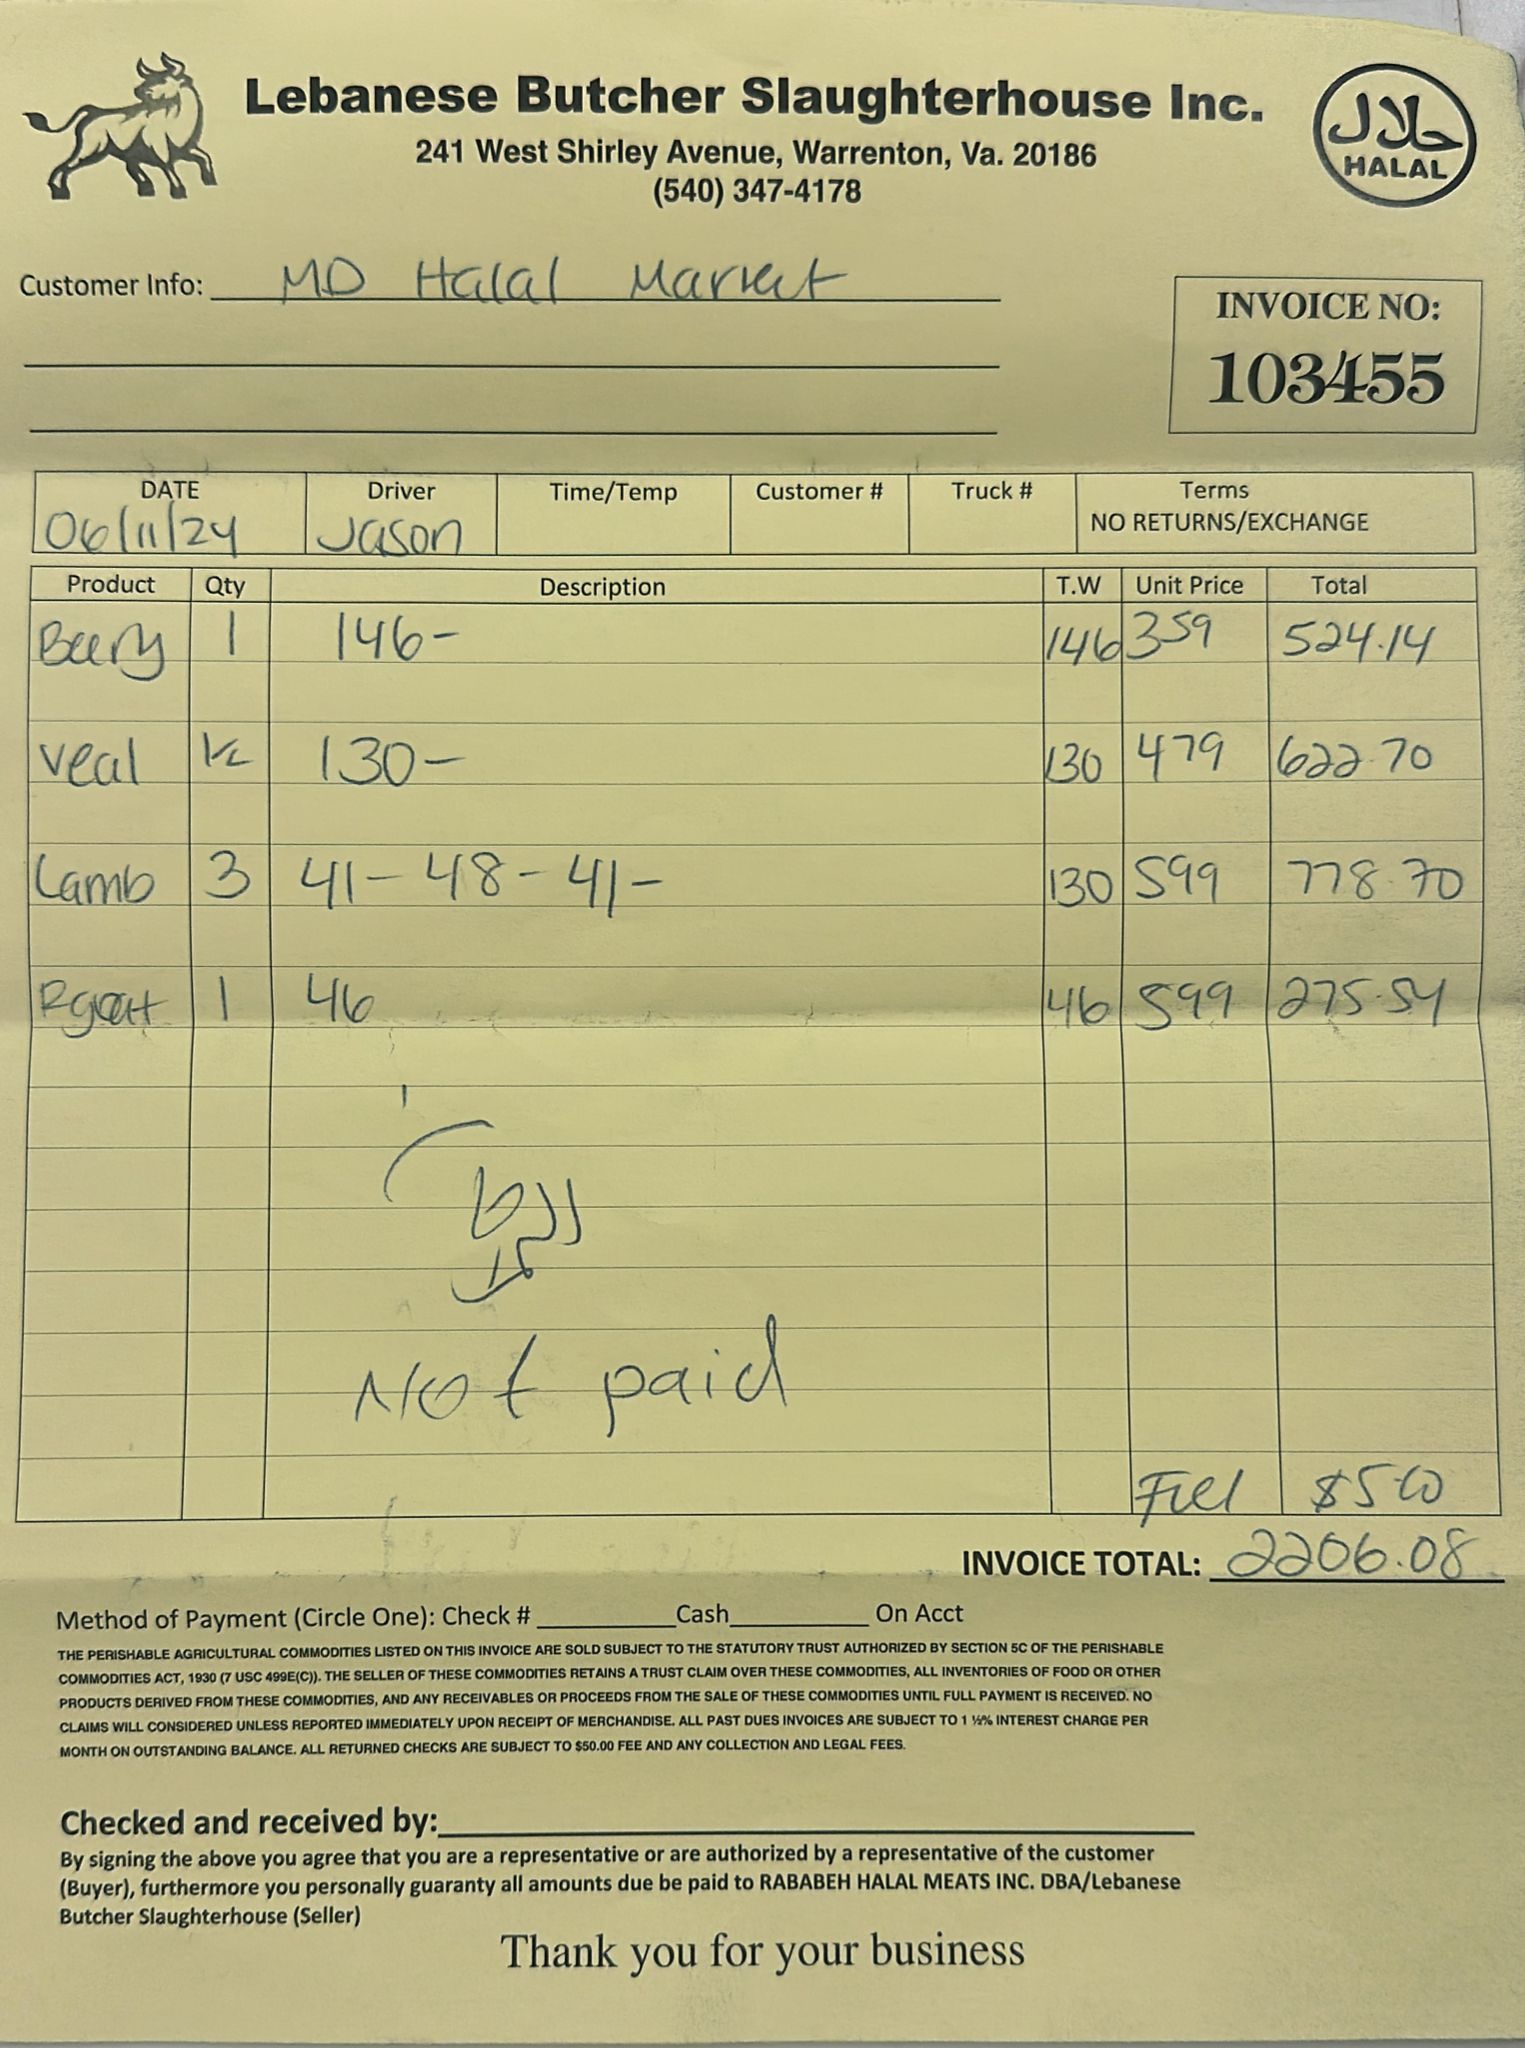 Lebanese Butcher Slaughterhouse Inc.
241 West Shirley Avenue, Warrenton, Va. 20186
(540) 347-4178
حلال
HALAL
Customer Info: MD Halal Market
INVOICE NO:
103455
DATE Driver Time/Temp Customer # Truck # Terms
06/11/24 Jason NO RETURNS/EXCHANGE
Product Qty Description T.W Unit Price Total
1 146- 146 359 524.14
Veal 130- 130 479 622.70
Lamb 3 41- 48- 41- 130 599 778.70
Rgoat 1 46 46 599 275.54
Not paid
Fuel $5.00
INVOICE TOTAL: 2206.08
Method of Payment (Circle One): Check # Cash On Acct
THE PERISHABLE AGRICULTURAL COMMODITIES LISTED ON THIS INVOICE ARE SOLD SUBJECT TO THE STATUTORY TRUST AUTHORIZED BY SECTION 5C OF THE PERISHABLE
COMMODITIES ACT, 1930 (7 USC 499E(C)). THE SELLER OF THESE COMMODITIES RETAINS A TRUST CLAIM OVER THESE COMMODITIES, ALL INVENTORIES OF FOOD OR OTHER
PRODUCTS DERIVED FROM THESE COMMODITIES, AND ANY RECEIVABLES OR PROCEEDS FROM THE SALE OF THESE COMMODITIES UNTIL FULL PAYMENT IS RECEIVED. NO
CLAIMS WILL CONSIDERED UNLESS REPORTED IMMEDIATELY UPON RECEIPT OF MERCHANDISE. ALL PAST DUES INVOICES ARE SUBJECT TO 1 ½% INTEREST CHARGE PER
MONTH ON OUTSTANDING BALANCE. ALL RETURNED CHECKS ARE SUBJECT TO $50.00 FEE AND ANY COLLECTION AND LEGAL FEES.
Checked and received by:
By signing the above you agree that you are a representative or are authorized by a representative of the customer
(Buyer), furthermore you personally guaranty all amounts due be paid to RABABEH HALAL MEATS INC. DBA/Lebanese
Butcher Slaughterhouse (Seller)
Thank you for your business